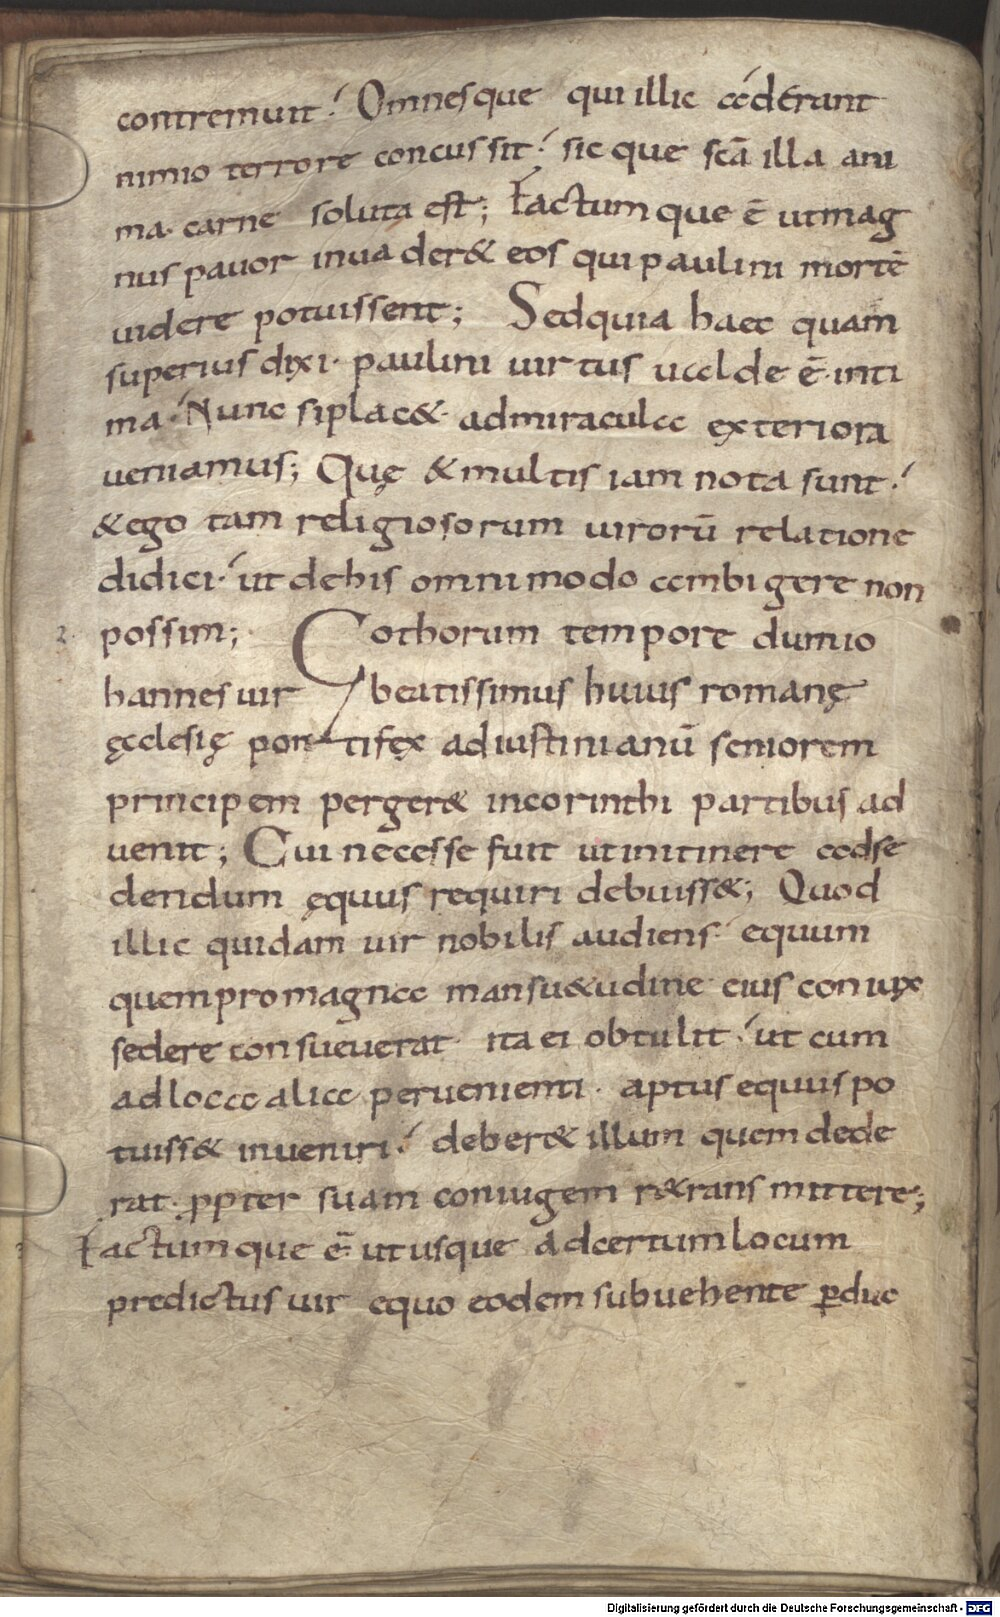 contremuit. Omnesque qui illic aderant
nimio terrore concussit. sic que scā illa ani
ma. carne soluta est; Factum que ē ut mag
nus pavor invader& eos qui paulini mortē
uidere potuissent; Sed quia haec quam
superius dixi. paulini uirtus ualde ē inti
ma. Nunc si plac& ad miracula exteriora
ueniamus; Quę & multis iam nota sunt.
& ego tam religiosorum uirorū relatione
didici. ut de his omnimodo ambigere non
2. possim; Gothorum tempore dum io
hannes uir beatissimus huius romanę
ęcclesię pontifex ad iustinianū seniorem
principem perger& in corinthi partibus ad
uenit; Cui necesse fuit ut in itinere ad se
dendum equus requiri debuiss&; Quod
illic quidam uir nobilis audiens equum
quem pro magna mansu&udine eius coniux
sedere consueuerat ita ei obtulit. ut cum
ad loca alia peruenienti. aptus equus po
tuiss& inueniri. deber& illum quem dede
rat. ppter suam coniugem r&rans mittere;
Factum que ē ut usque ad certum locum
predictus uir equo eodem subuehente pduc
Digitalisierung gefördert durch die Deutsche Forschungsgemeinschaft - DFG